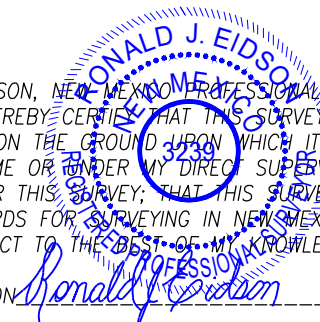 RONALD J. EIDSON
NEW MEXICO
3239
REGISTERED PROFESSIONAL SURVEYOR
SON, NEW MEXICO PROFESSIONAL
EREBY CERTIFY THAT THIS SURVEY
ON THE GROUND UPON WHICH IT
ME OR UNDER MY DIRECT SUPER
R THIS SURVEY; THAT THIS SURVE
RDS FOR SURVEYING IN NEW MEX
CT TO THE BEST OF MY KNOWLE
ON Ronald J Eidson